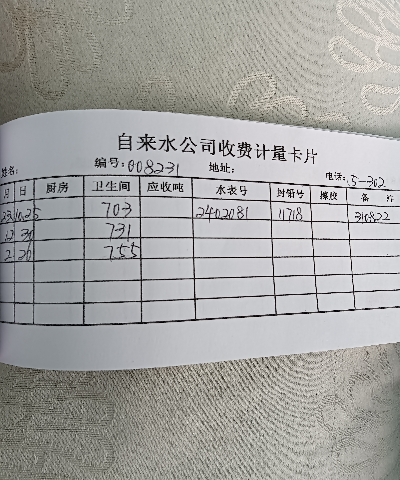 自来水公司收费计量卡片
姓名: 编号:008231 地址: 电话: 5-302
月 日 厨房 卫生间 应收吨 水表号 封铅号 备
23.10.25 703 2402081 11718 310822
12 30 731
2 26 755